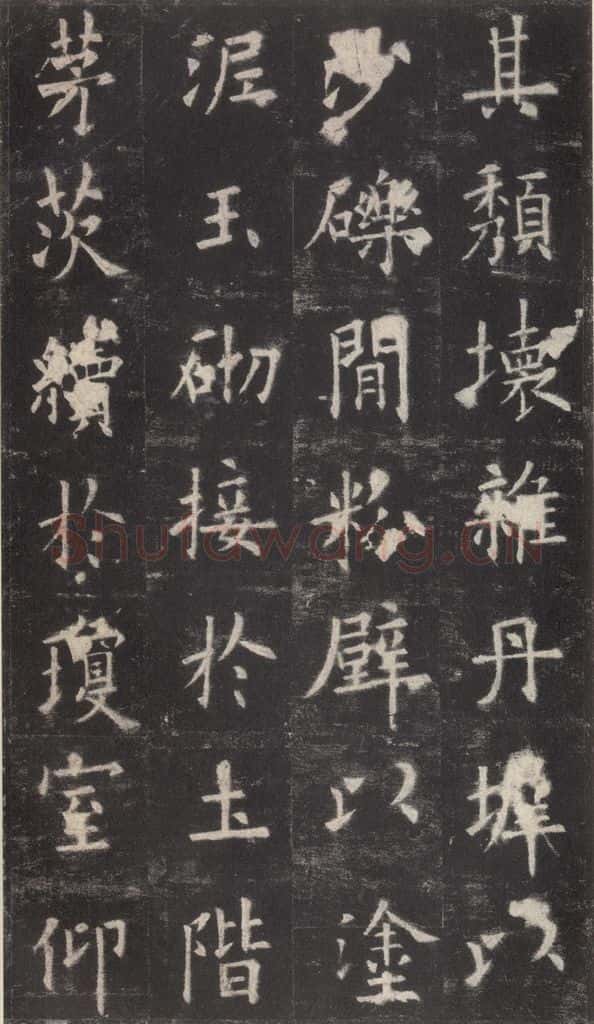 其頹壞雜丹墀以
沙礫間粉壁以塗
泥玉砌接於土階
茅茨續於瓊室仰
Shufawang.cn